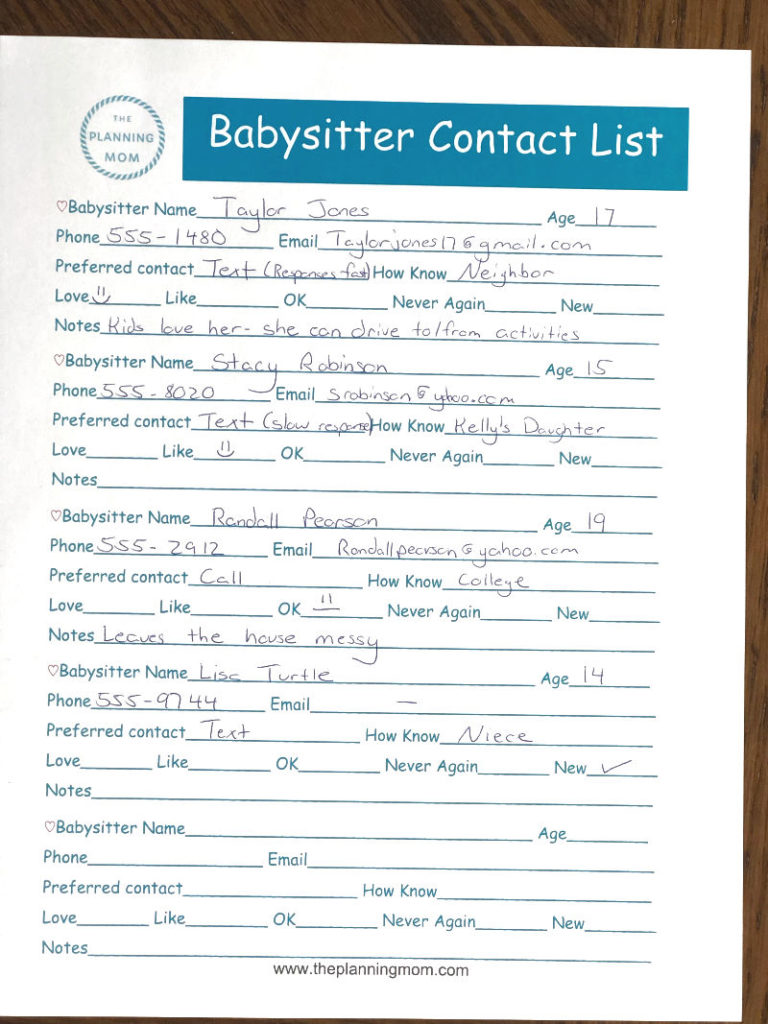 THE
PLANNING
MOM
Babysitter Contact List
♡Babysitter Name Taylor Jones Age 17
Phone 555-1480 Email Taylorjones17@gmail.com
Preferred contact Text (Responses fast) How Know Neighbor
Love Like OK Never Again New
Notes Kids love her- she can drive to/from activities
♡Babysitter Name Stacy Robinson Age 15
Phone 555-8020 Email srobinson@yahoo.com
Preferred contact Text (slow response) How Know Kelly's Daughter
Love Like OK Never Again New
Notes
♡Babysitter Name Randall Pearson Age 19
Phone 555-2912 Email Randallpearson@yahoo.com
Preferred contact Call How Know College
Love Like OK Never Again New
Notes Leaves the house messy
♡Babysitter Name Lisa Turtle Age 14
Phone 555-9744 Email —
Preferred contact Text How Know Niece
Love Like OK Never Again New ✓
Notes
♡Babysitter Name Age
Phone Email
Preferred contact How Know
Love Like OK Never Again New
Notes
www.theplanningmom.com